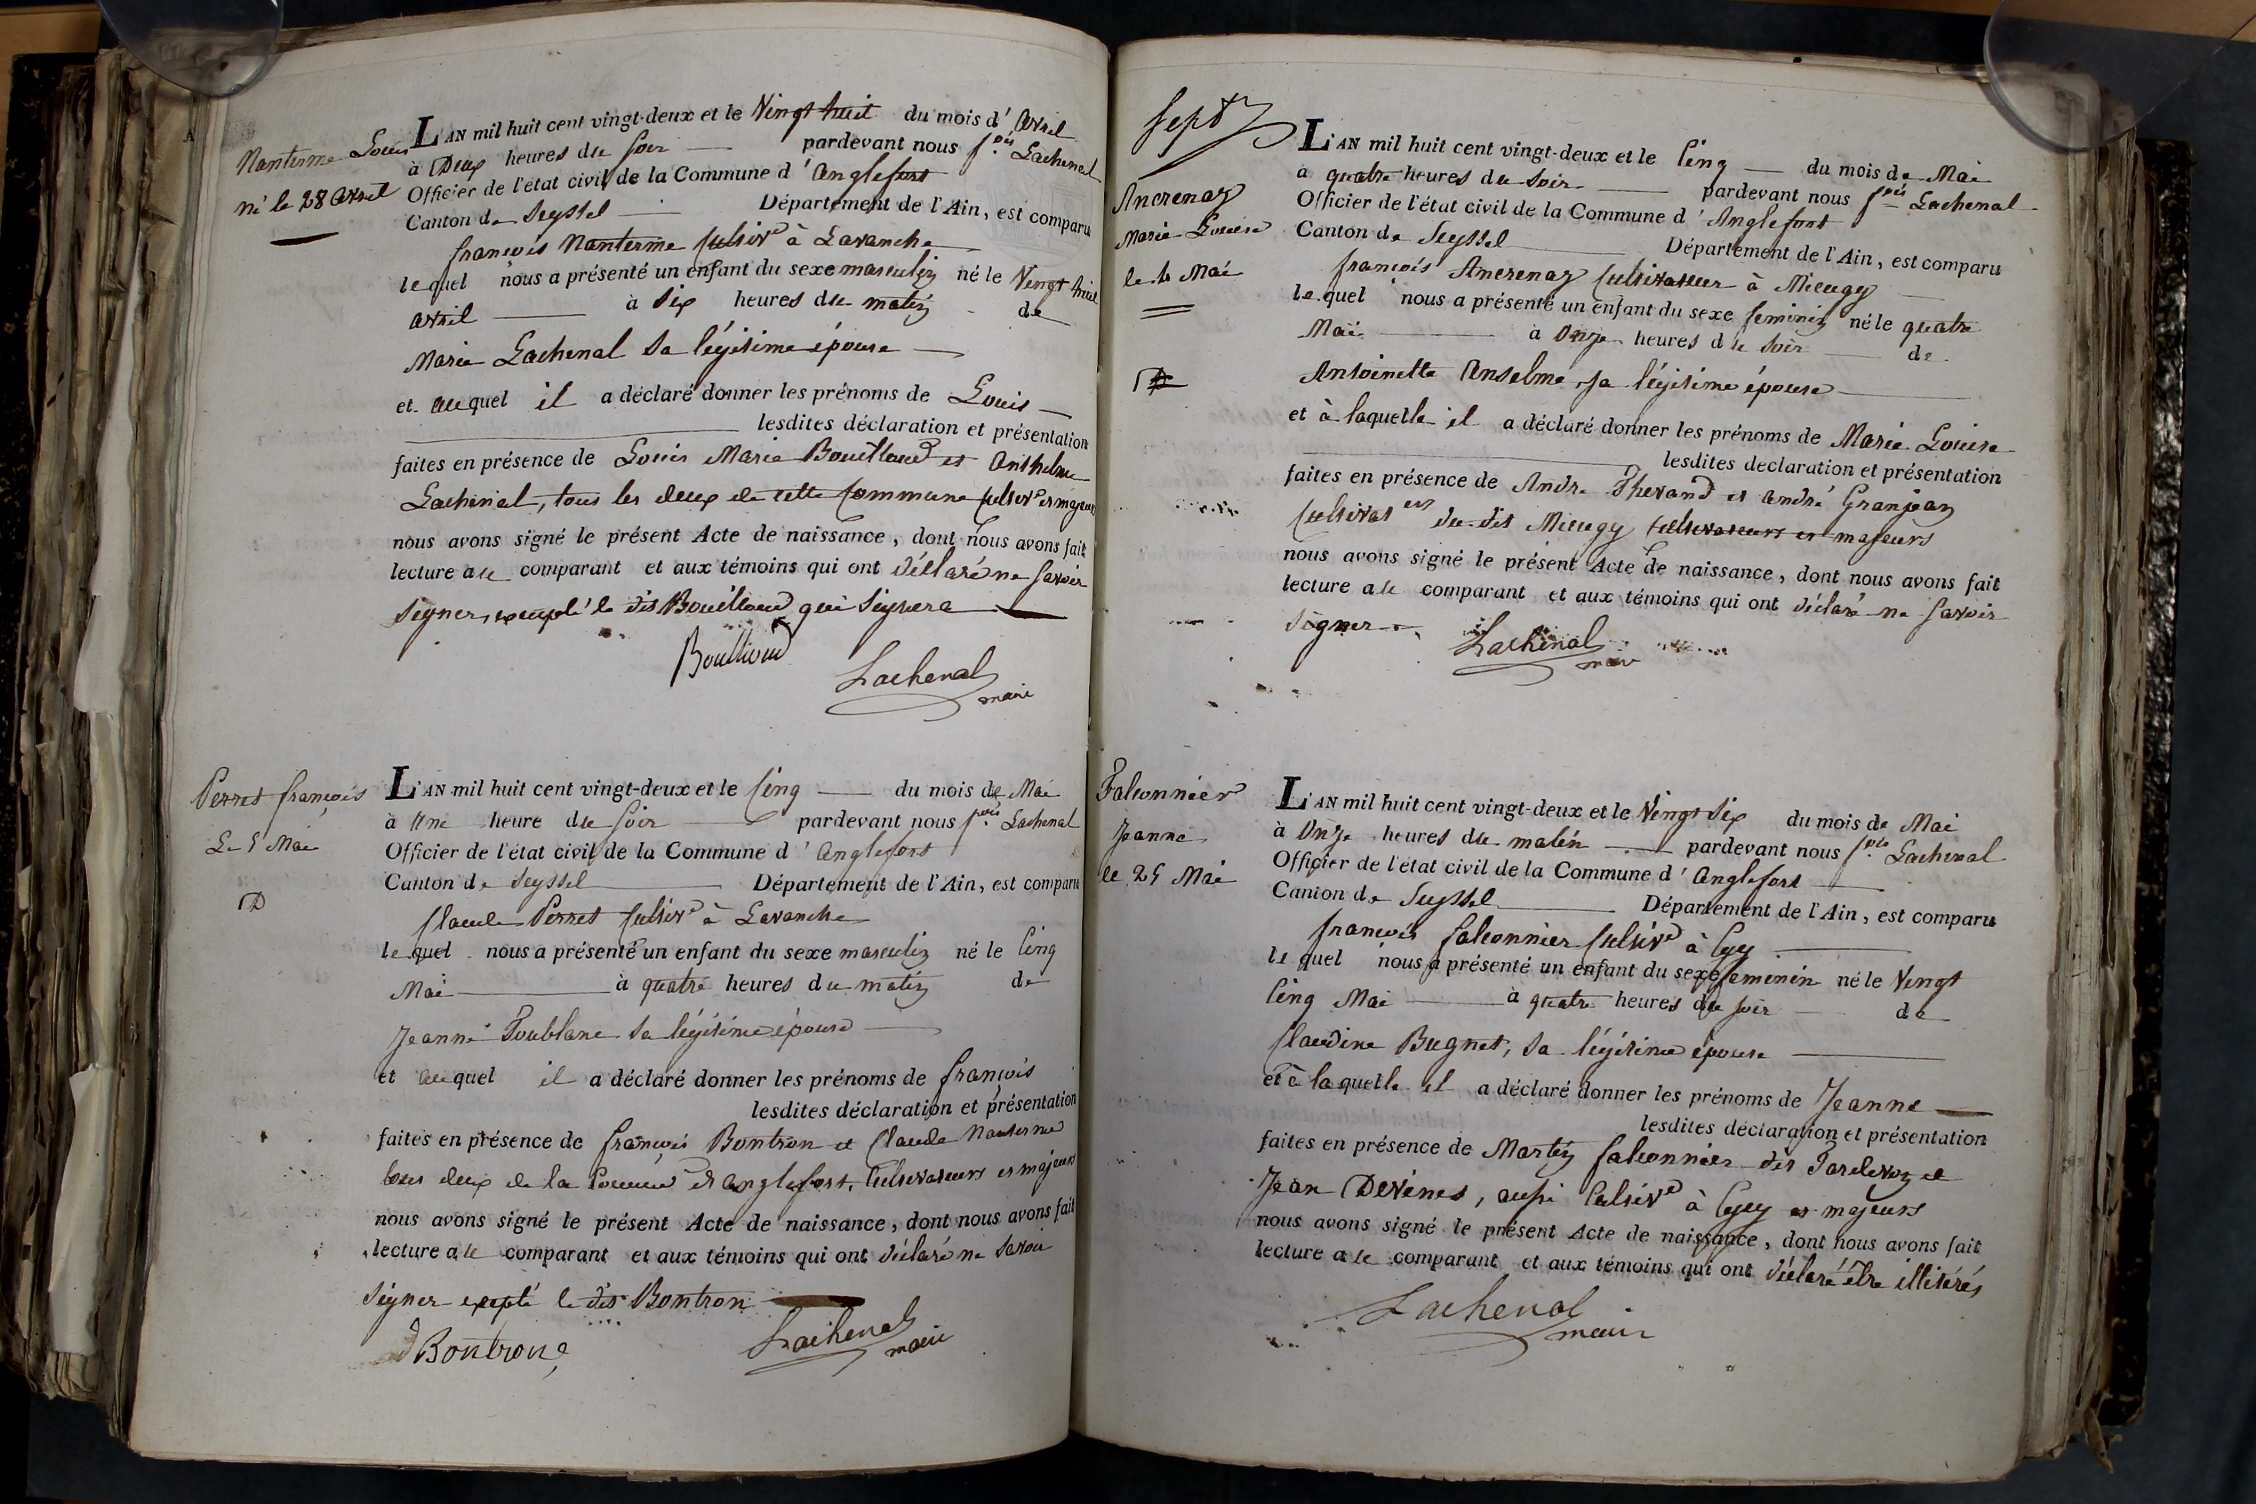 Nanterme Louis
né le 28 avril
L'AN mil huit cent vingt-deux et le Vingt huit du mois d'avril
à Deux heures du soir pardevant nous f.çois Lachenal
Officier de l'état civil de la Commune d'anglefort
Canton de Seyssel Département de l'Ain, est comparu
françois Nanterme Cultivr à Lavanche
lequel nous a présenté un enfant du sexe masculin né le Vingt huit
avril à Six heures du matin de
Marie Lachenal Sa légitime épouse
et auquel il a déclaré donner les prénoms de Louis
lesdites déclaration et présentation
faites en présence de Louis Marie Bouilloud et Anthelme
Lachenal, tous les deux de cette Commune Cultivr et majeurs
nous avons signé le présent Acte de naissance, dont nous avons fait
lecture au comparant et aux témoins qui ont déclaré ne savoir
Signer, excepté le dit Bouilloud qui Signera
Bouilloud
Lachenal
maire
Perret françois
Le 5 Mai
D
L'AN mil huit cent vingt-deux et le Cinq du mois de Mai
à Une heure du soir pardevant nous f.çois Lachenal
Officier de l'état civil de la Commune d'anglefort
Canton de Seyssel Département de l'Ain, est comparu
Claude Perret Cultivr à Lavanche
lequel nous a présenté un enfant du sexe masculin né le Cinq
Mai à quatre heures du matin de
Jeanne Toublanc Sa légitime épouse
et auquel il a déclaré donner les prénoms de françois
lesdites déclaration et présentation
faites en présence de françois Bontron et Claude Nanterme
tous deux de la d'anglefort, Cultivateurs et majeurs
nous avons signé le présent Acte de naissance, dont nous avons fait
lecture au comparant et aux témoins qui ont déclaré ne Savoir
Signer excepté le dit Bontron
Bontron
Lachenal
maire
Sept
Ancrenaz
Marie Louise
le 4 Mai
D
L'AN mil huit cent vingt-deux et le Cinq du mois de Mai
à quatre heures du Soir pardevant nous f.çois Lachenal
Officier de l'état civil de la Commune d'Anglefort
Canton de Seyssel Département de l'Ain, est comparu
françois Ancrenaz Cultivateur à Mieugy
lequel nous a présenté un enfant du sexe feminin né le quatre
Mai à Onze heures du Soir de
Antoinette Anselme, sa légitime épouse
et à laquelle il a déclaré donner les prénoms de Marie Louise
lesdites declaration et présentation
faites en présence de Andre Thevand et andré Granjean
Cultivateurs du dit Mieugy Cultivateurs et majeurs
nous avons signé le présent Acte de naissance, dont nous avons fait
lecture au comparant et aux témoins qui ont déclaré ne savoir
signer
Lachenal
maire
Falconnier
Jeanne
le 25 Mai
L'AN mil huit cent vingt-deux et le Vingt Six du mois de Mai
à Onze heures du matin pardevant nous f.çois Lachenal
Officier de l'état civil de la Commune d'anglefort
Canton de Seyssel Département de l'Ain, est comparu
françois falconnier Cultivr à Cyy
lequel nous a présenté un enfant du sexe feminin né le Vingt
Cinq Mai à quatre heures du soir de
Claudine Bugnet, Sa légitime épouse
et à laquelle il a déclaré donner les prénoms de Jeanne
lesdites déclaration et présentation
faites en présence de Martin falconnier dit et
Jean Devines, aussi Cultivr à et majeurs
nous avons signé le présent Acte de naissance, dont nous avons fait
lecture au comparant et aux témoins qui ont déclaré être illitérés
Lachenal
maire